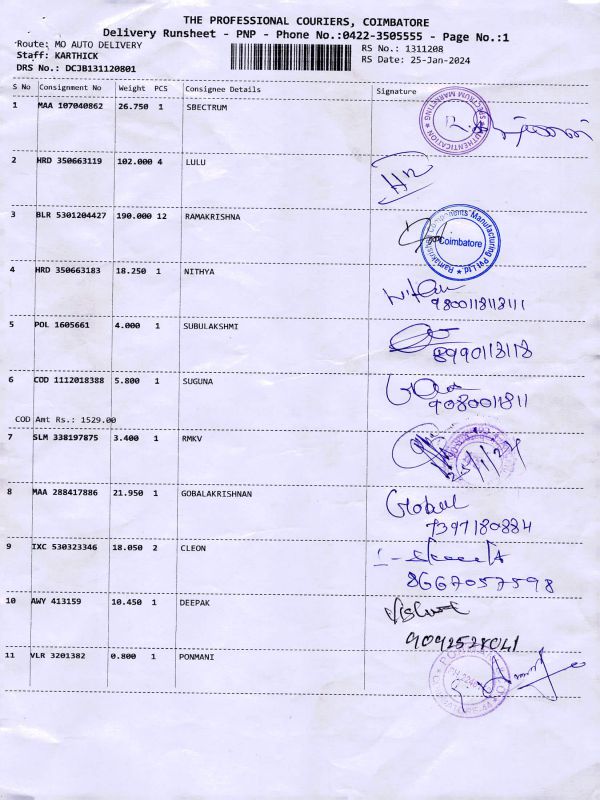 THE PROFESSIONAL COURIERS, COIMBATORE
Delivery Runsheet - PNP - Phone No.:0422-3505555 - Page No.:1
Route: MO AUTO DELIVERY
RS No.: 1311208
Staff: KARTHICK
RS Date: 25-Jan-2024
DRS No.: DCJB131120801
S No Consignment No Weight PCS Consignee Details Signature
1 MAA 107040862 26.750 1 SBECTRUM
SPECTRUM MARKETING * AUTHENTICATION *
2 HRD 350663119 102.000 4 LULU
3 BLR 5301204427 190.000 12 RAMAKRISHNA
Components Manufacturing Pvt Ltd * Ramakrishna
Coimbatore
4 HRD 350663183 18.250 1 NITHYA
5 POL 1605661 4.000 1 SUBULAKSHMI
8990113113
6 COD 1112018388 5.800 1 SUGUNA
9080011811
COD Amt Rs.: 1529.00
7 SLM 338197875 3.400 1 RMKV
25/1/24
8 MAA 288417886 21.950 1 GOBALAKRISHNAN
Global
7397180884
9 IXC 530323346 18.050 2 CLEON
8667057598
10 AWY 413159 10.450 1 DEEPAK
9092528041
11 VLR 3201382 0.800 1 PONMANI